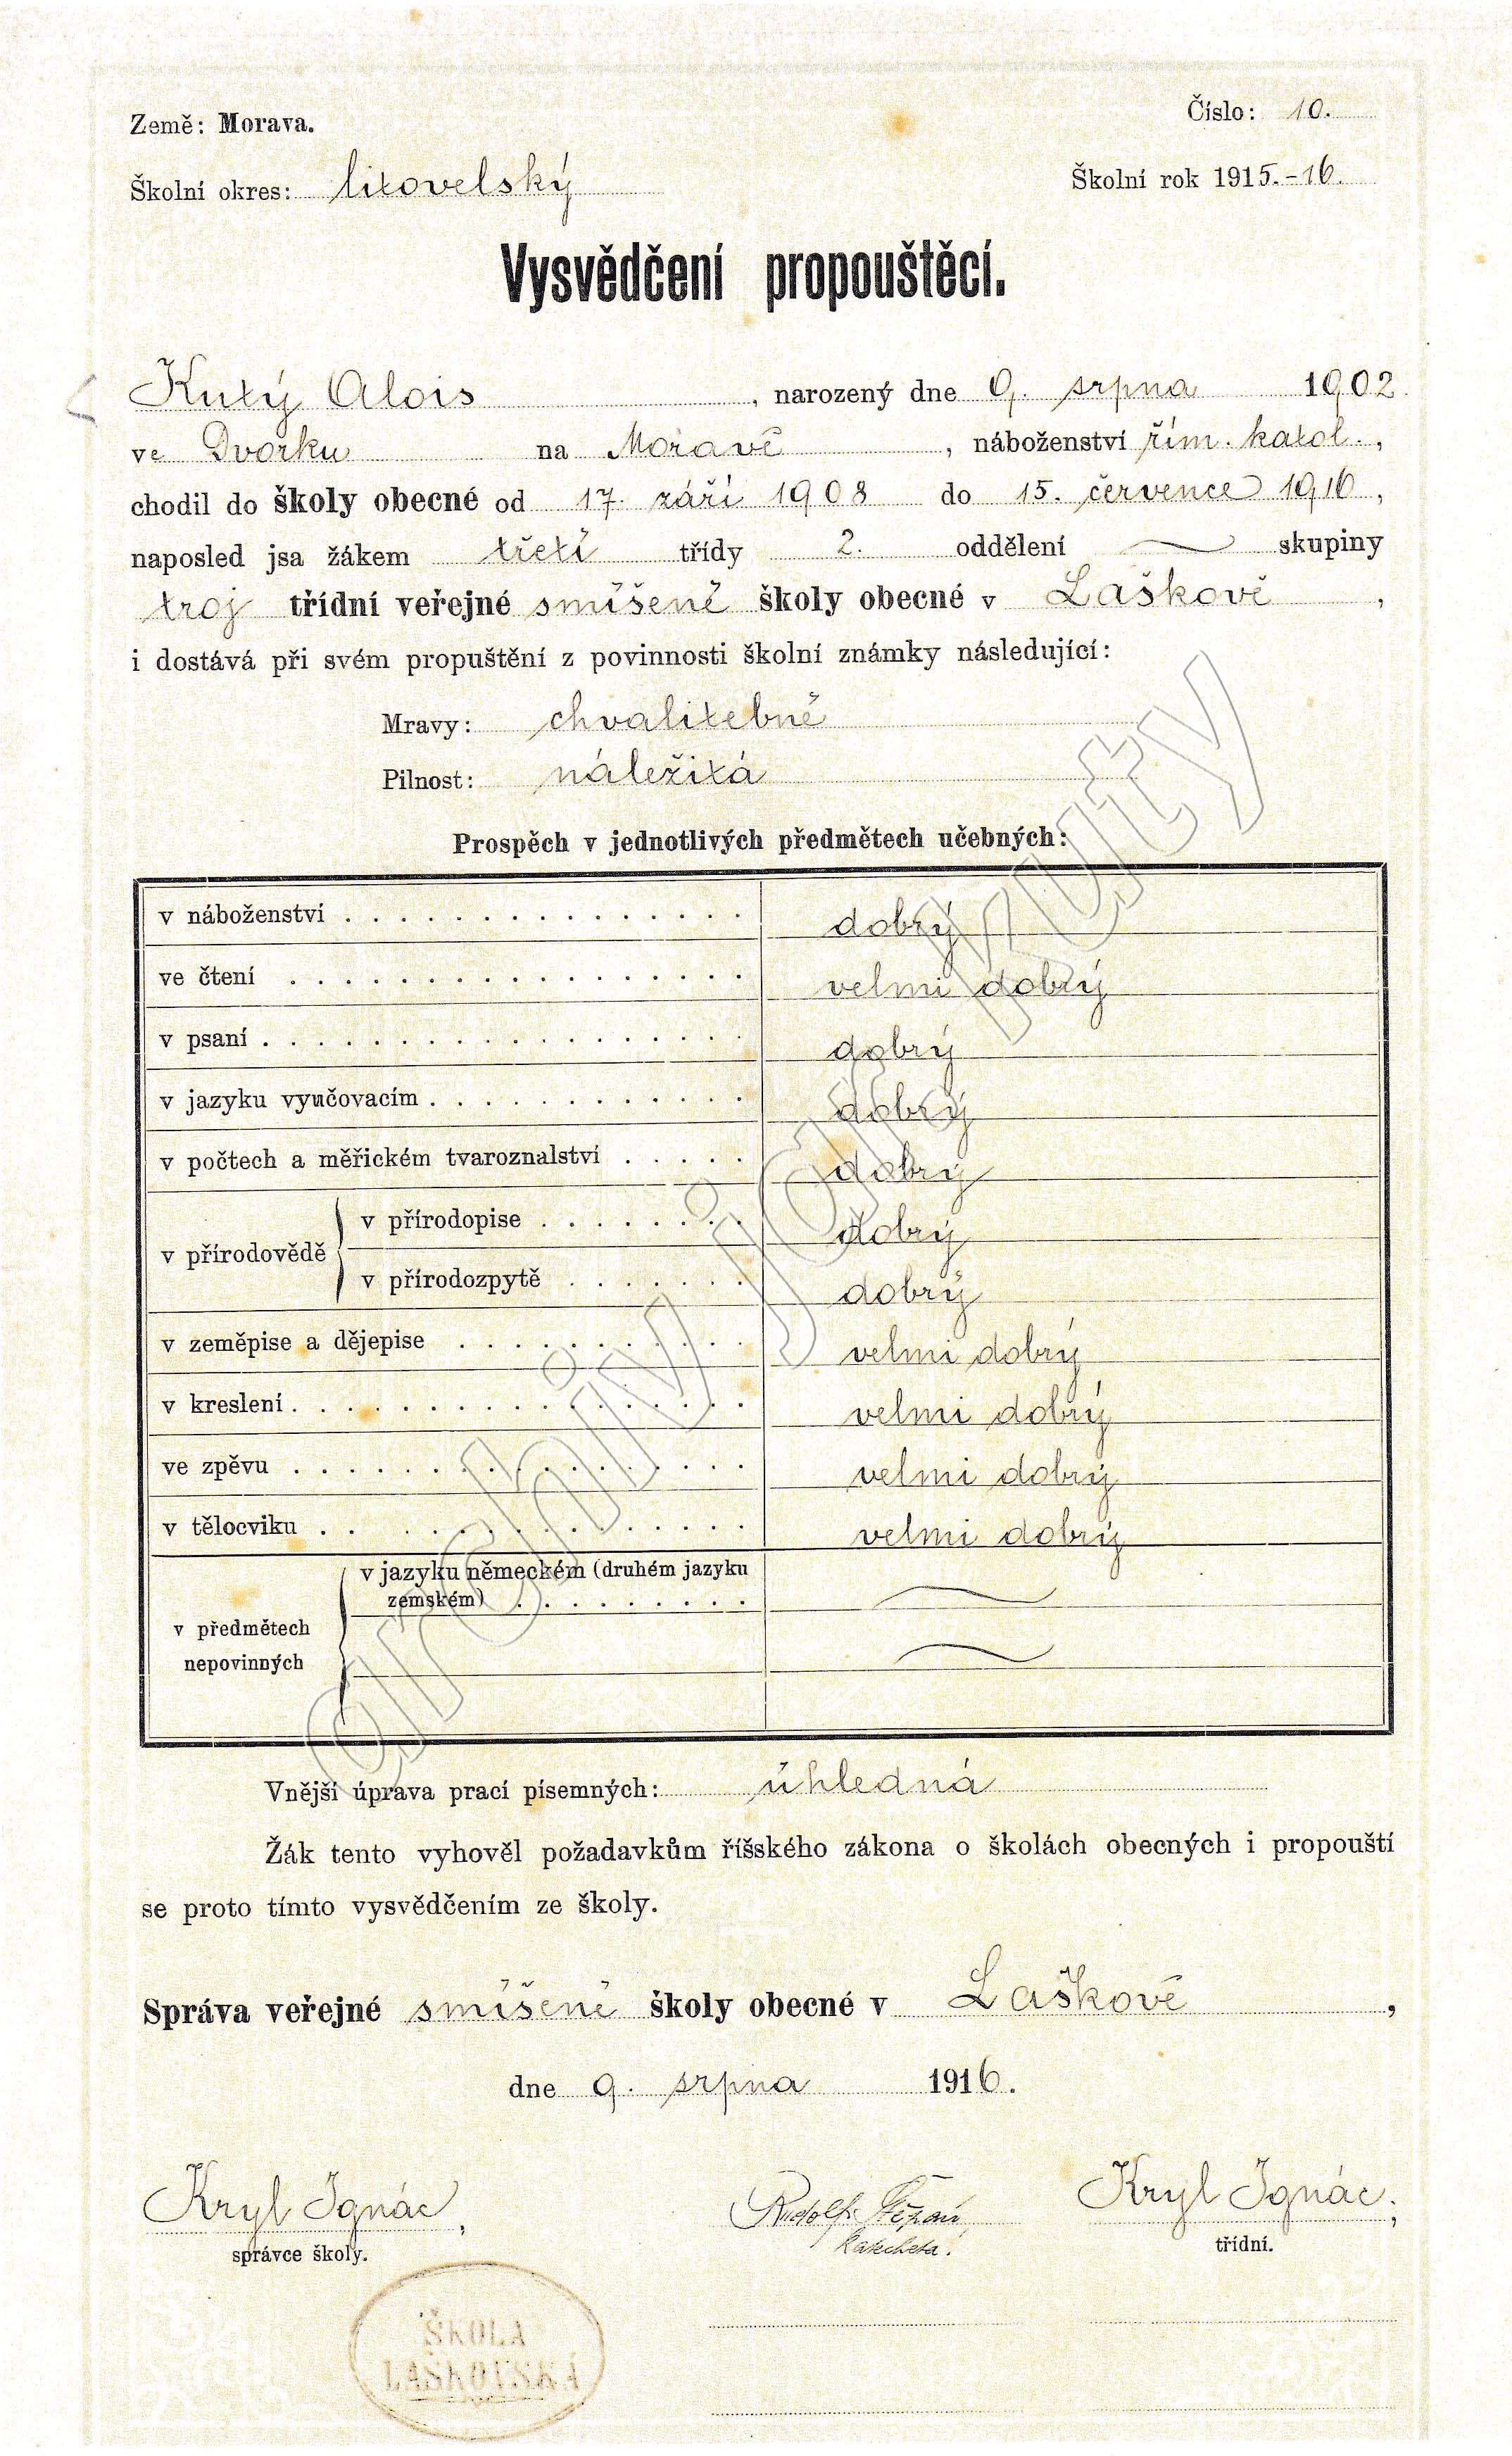 Země: Morava.
Číslo: 10.
Školní okres: litovelský
Školní rok 1915.-16.
Vysvědčení propouštěcí.
Kutý Alois, narozený dne 9. srpna 1902.
ve Dvorku na Moravě, náboženství řím. katol.,
chodil do školy obecné od 17. září 1908 do 15. července 1916,
naposled jsa žákem třetí třídy 2. oddělení — skupiny
troj třídní veřejné smíšené školy obecné v Laškově,
i dostává při svém propuštění z povinnosti školní známky následující:
Mravy: chvalitebné
Pilnost: náležitá
Prospěch v jednotlivých předmětech učebných:
v náboženství . . . . . dobrý
ve čtení . . . . . velmi dobrý
v psaní . . . . . dobrý
v jazyku vyučovacím . . . . . dobrý
v počtech a měřickém tvaroznalství . . . . . dobrý
v přírodovědě
v přírodopise . . . . . dobrý
v přírodozpytě . . . . . dobrý
v zeměpise a dějepise . . . . . velmi dobrý
v kreslení . . . . . velmi dobrý
ve zpěvu . . . . . velmi dobrý
v tělocviku . . . . . velmi dobrý
v předmětech
nepovinných
v jazyku německém (druhém jazyku
zemském) . . . . . —
—
Vnější úprava prací písemných: úhledná
Žák tento vyhověl požadavkům říšského zákona o školách obecných i propouští
se proto tímto vysvědčením ze školy.
Správa veřejné smíšené školy obecné v Laškově,
dne 9. srpna 1916.
Kryl Ignác,
správce školy.
Rudolf Štěpán,
katecheta.
Kryl Ignác,
třídní.
ŠKOLA
LAŠKOVSKÁ
archiv jar kuty